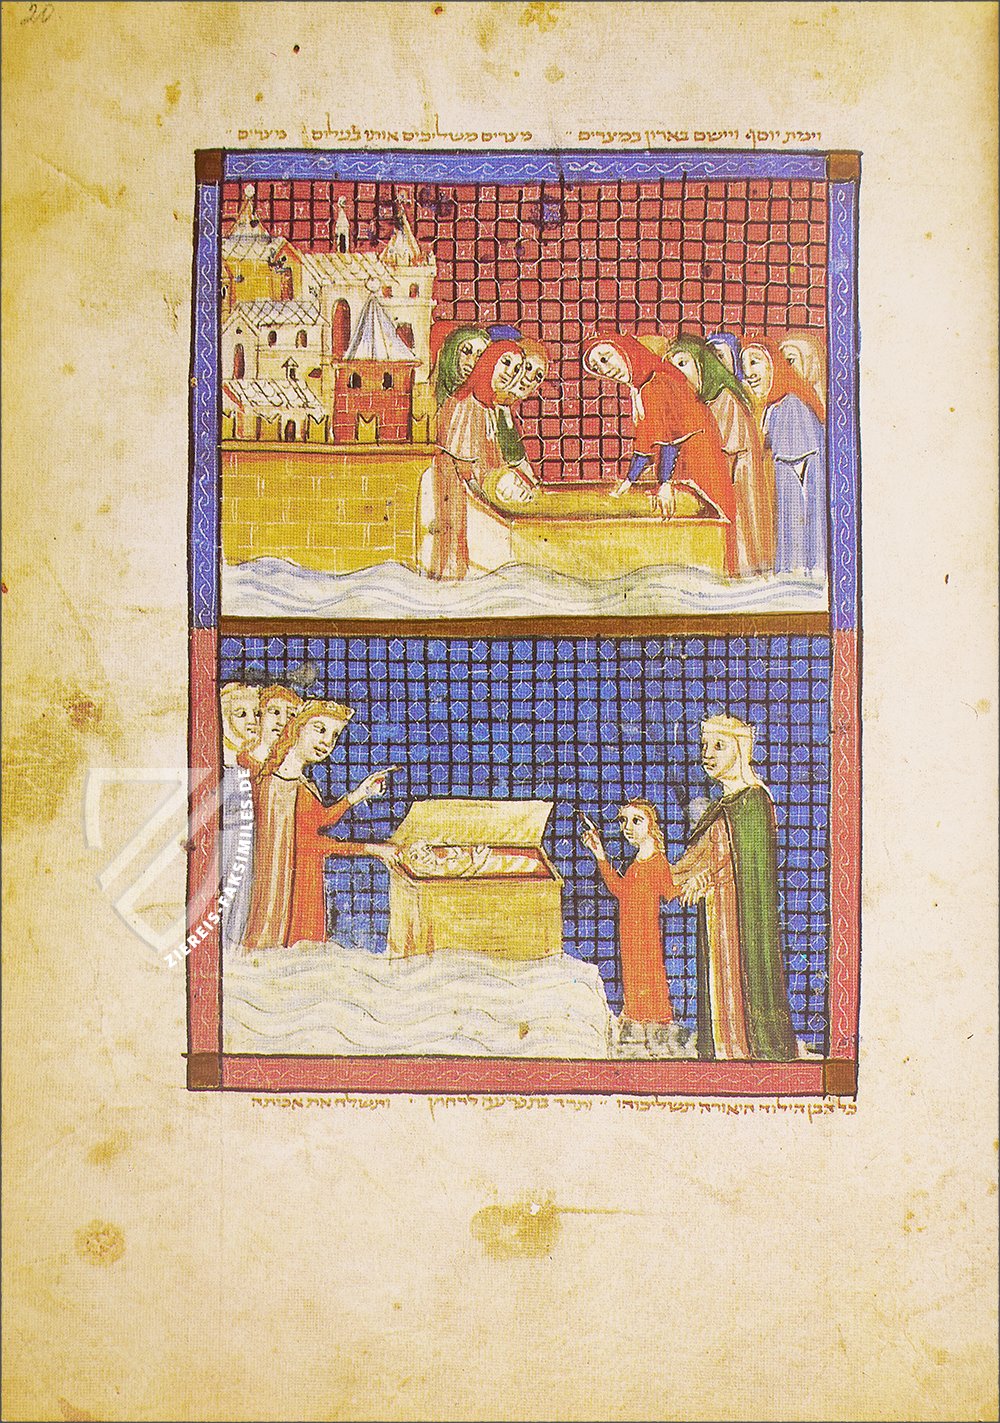 20
וימת יוסף ויישם בארון במצרים ״ מצרים משליכים אותו לנילוס מצרים ״
כל הבן הילוד היאורה תשליכוהו ״ ותרד בת פרעה לרחוץ ׳ ותשלח את אמתה
ZIEREIS-FAKSIMILES.DE